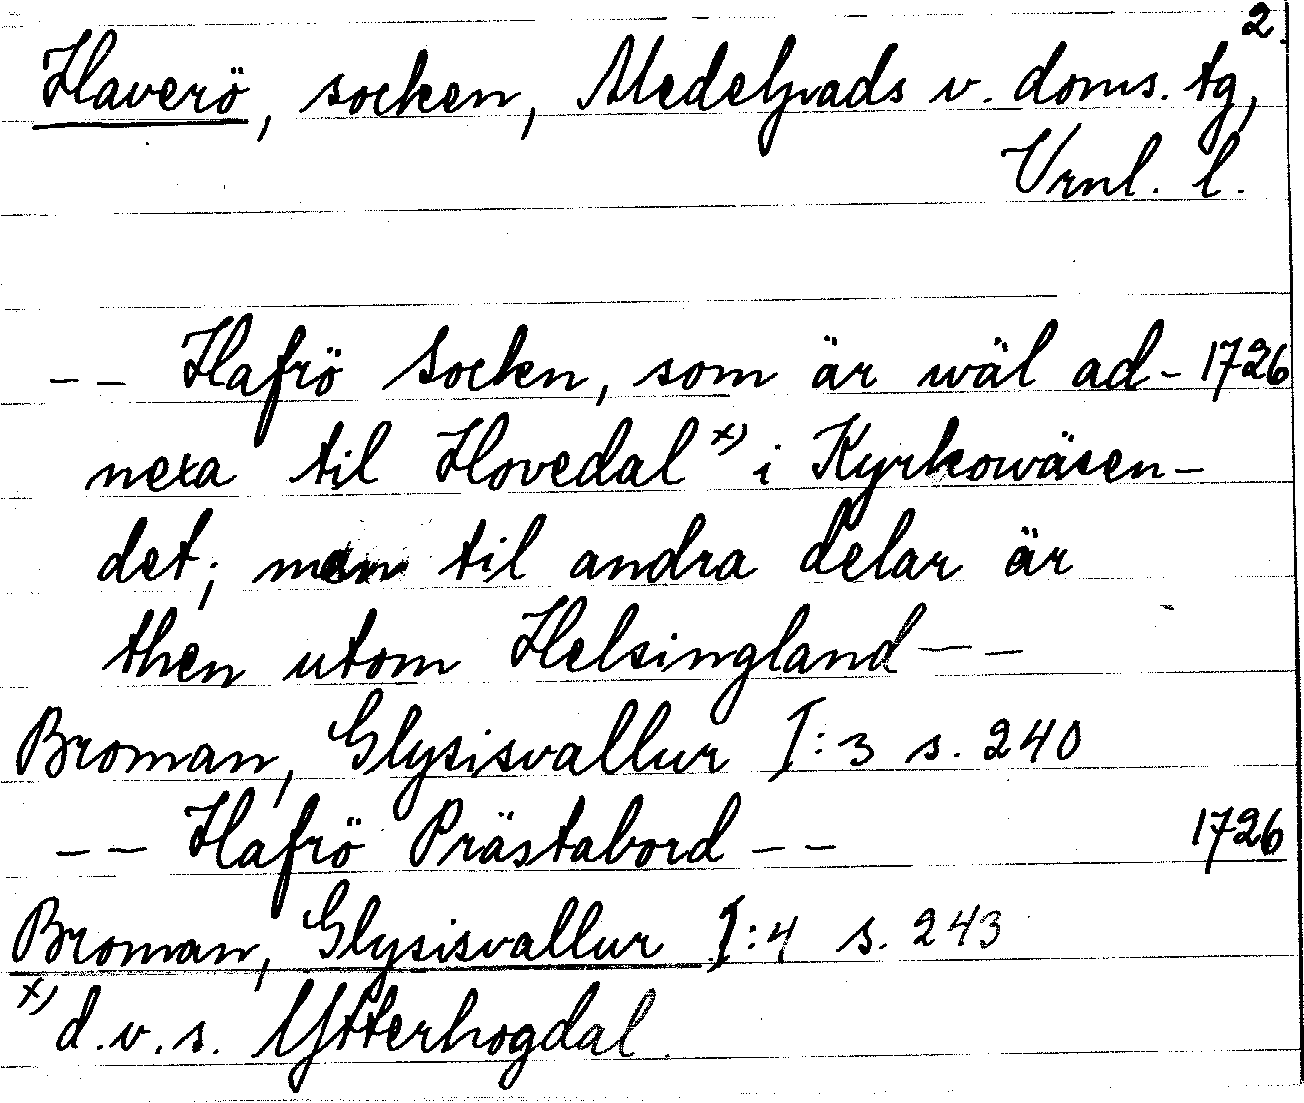 2.
Haverö, socken, Medelpads v. doms. tg,
Vrnl. l.
-- Hafrö Socken, som är wäl ad- 1726
nexa til Hovedal x) i Kyrkowäsen-
det; men til andra delar är
then utom Helsingland --
Broman, Glysisvallur I:3 s. 240
-- Hafrö Prästabord -- 1726
Broman, Glysisvallur I:4 s. 243
x) d.v.s. Ytterhogdal.